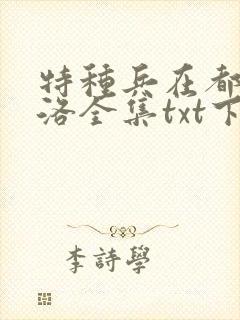 特種兵在都
洛全集txt下
李詩學